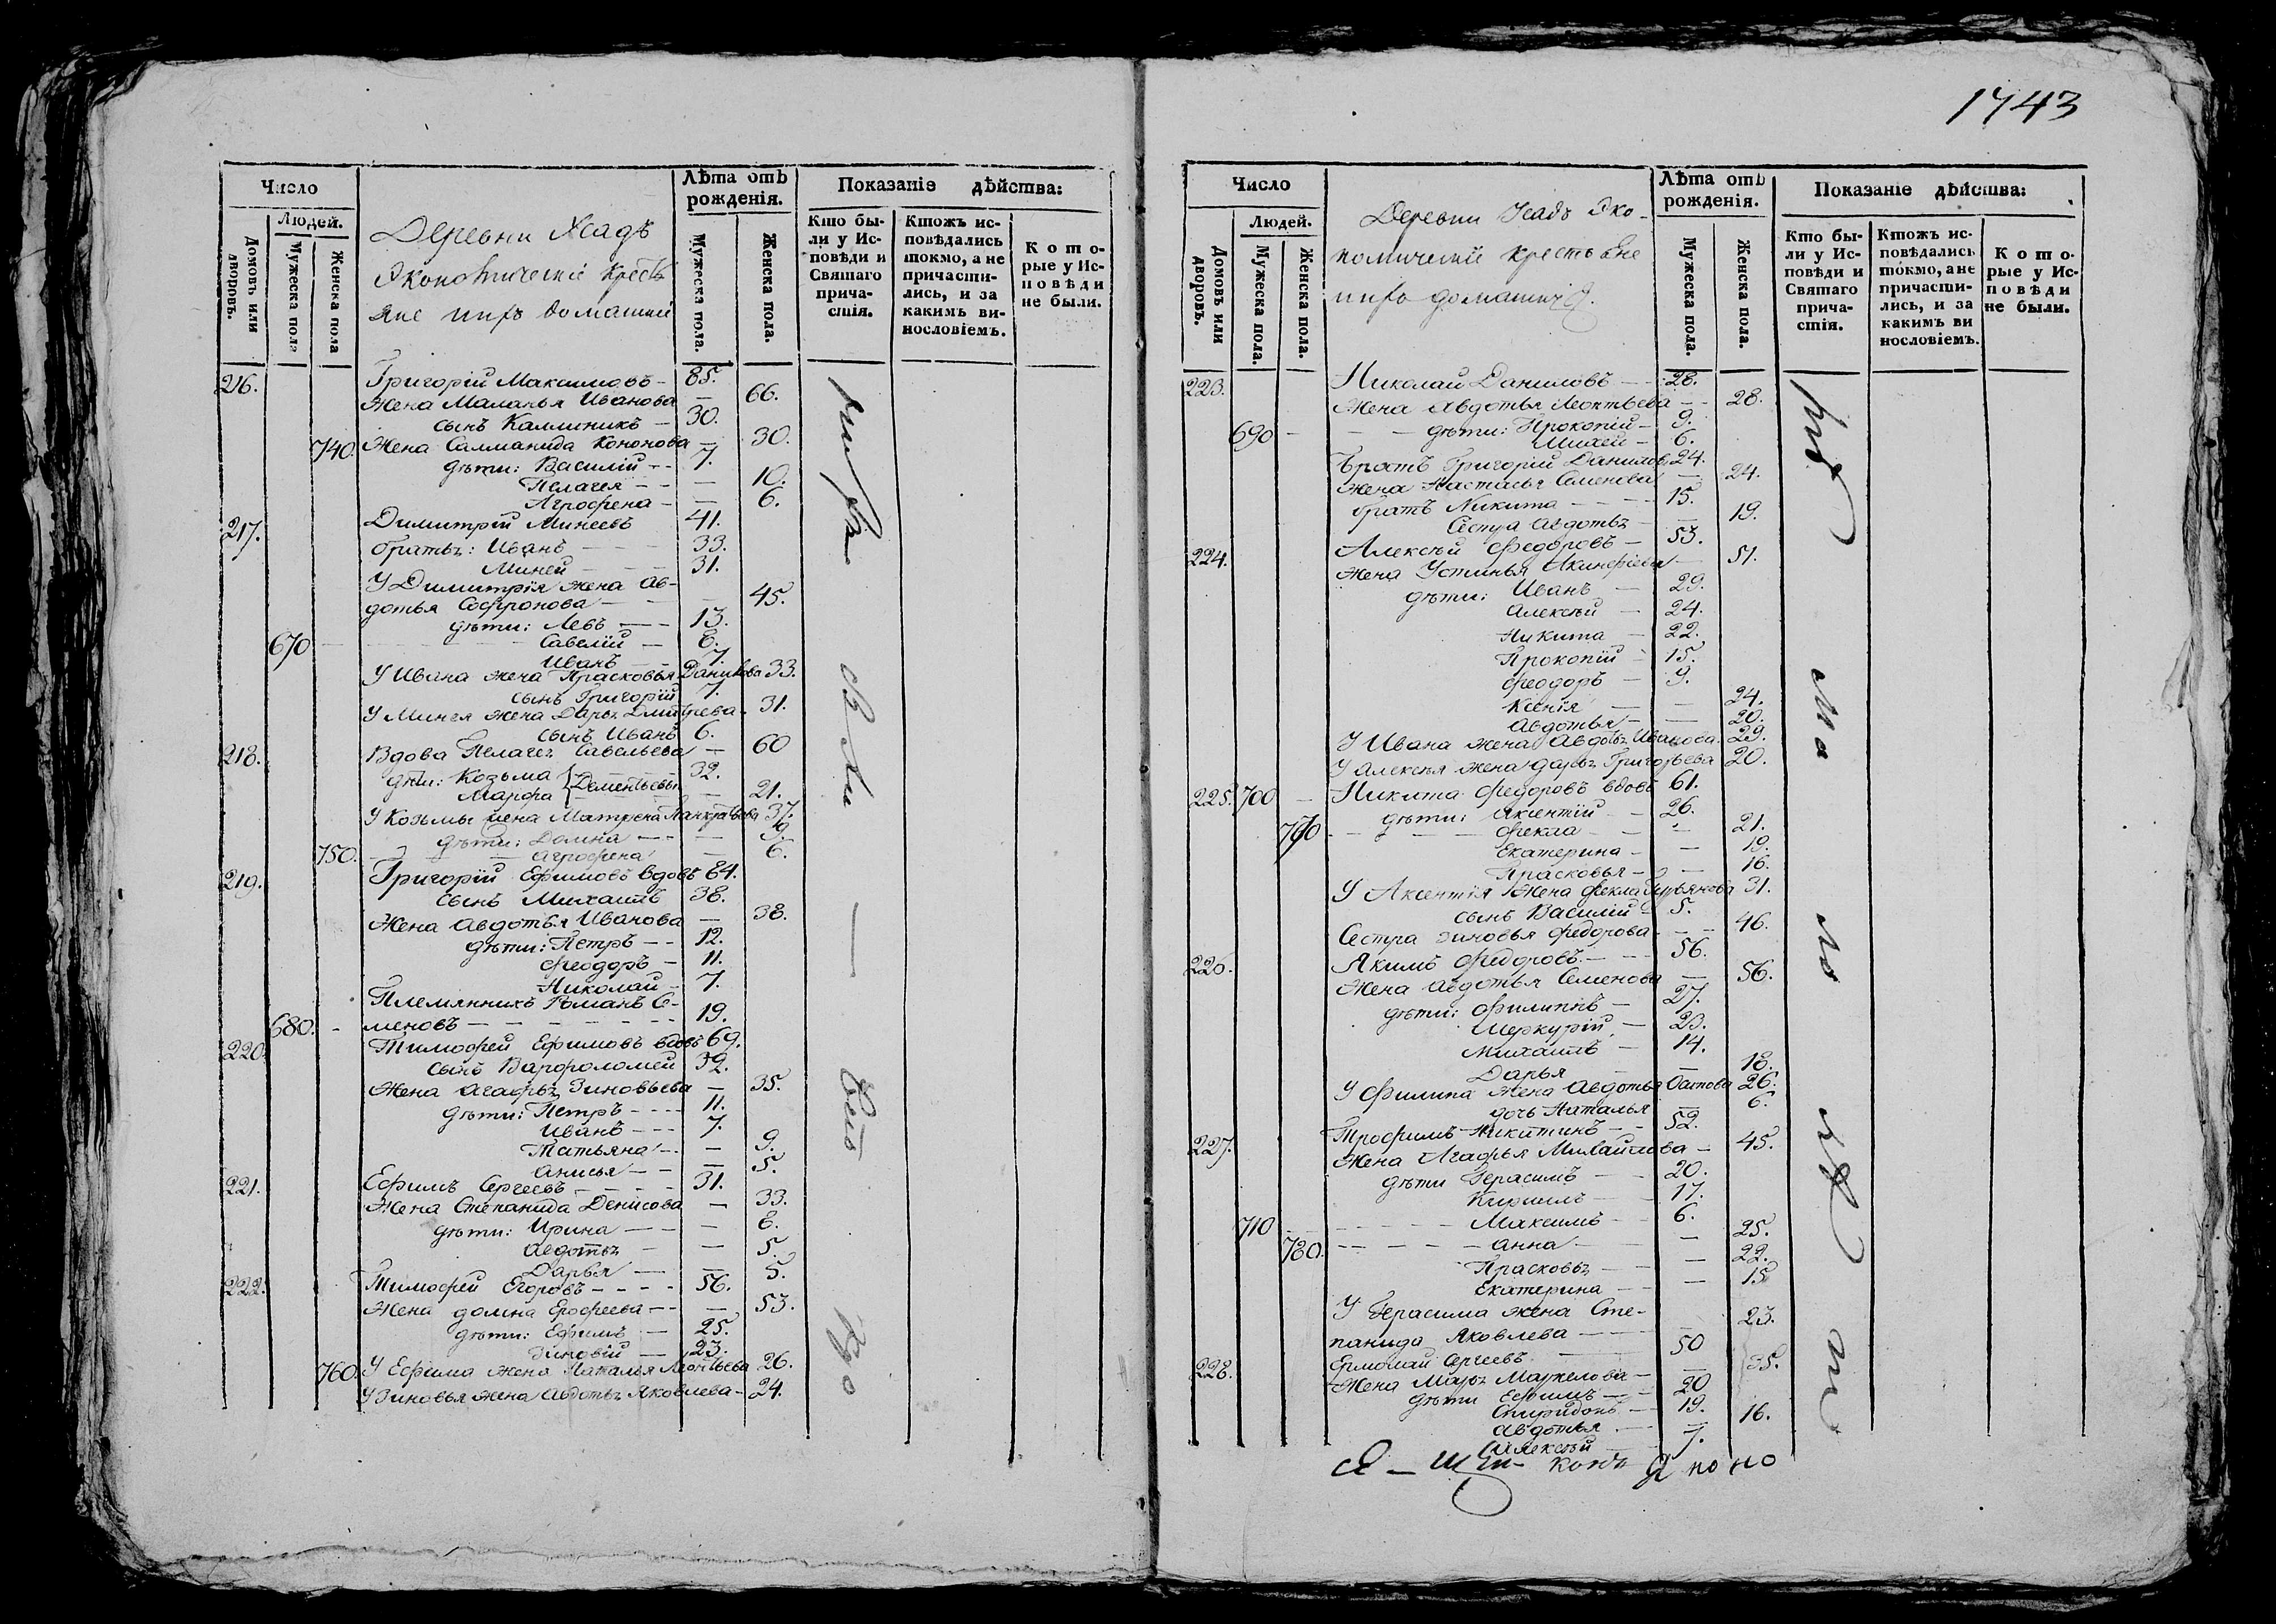 1743
Число
Людей.
Домовъ или дворовъ.
Мужеска пола
Женска пола
Деревни Усадъ
Экономическіе кресть
яне ихъ домашніи
Лѣта отъ рожденія.
Мужеска пола.
Женска пола.
Показаніе дѣйства:
Кто бы-
ли у Ис-
повѣди и
Святаго
прича-
стія.
Ктожъ ис-
повѣдались
токмо, а не
причасти-
лись, и за
какимъ ви-
нословіемъ.
Кото-
рые у Ис-
повѣди
не были.
216. Григорій Максимовъ - 85.
Жена Маланья Иванова — 66.
сынъ Каллиникъ - 30.
740. Жена Саламанида Кононова — 30.
дѣти: Василій - - 7.
Пелагея - - — 10.
Агрофена - — 6.
217. Димитрій Минеевъ 41.
братья: Иванъ 33.
Миней 31.
У Димитрія жена Ав-
дотья Софронова — 45.
дѣти: Левъ — 13.
670 Савелій — 8.
Иванъ — 7.
У Ивана жена Прасковья Данилова 33.
сынъ Григорій 7.
У Минея жена Дарья Дмитрева - 31.
сынъ Иванъ 6.
218. Вдова Пелагея Савельева — 60
дѣти: Козьма Дементьевы 32.
Марфа — 21.
У Козьмы жена Матрена Панкратьева 37.
дѣти: Домна — 9.
750. Агрофена — 6.
219. Григорій Ефимовъ вдовъ 64.
сынъ Михаилъ 38.
Жена Авдотья Иванова — 38.
дѣти: Петръ - - 12.
Феодоръ - 11.
Николай - 7.
Племянникъ Романъ Се-
680. меновъ - - - 19.
220. Тимофей Ефимовъ вдовъ 69.
сынъ Варфоломей 32.
Жена Агафья Зиновьева — 35.
дѣти: Петръ - - - 11.
Иванъ - - - 7.
Татьяна - - — 9.
Анисья - - — 5.
221. Ефимъ Сергеевъ - - - 31.
Жена Степанида Денисова — 33.
дѣти: Ирина — — 8.
Авдотья - — 5.
Дарья — — 5.
222. Тимофей Егоровъ - - - - 56.
Жена Домна Ерофеева - - — 53.
дѣти: Ефимъ — 25.
Зиновій — 23.
760. У Ефима жена Наталья Леонтьева 26.
У Зиновья жена Авдотья Яковлева - 24.
Число
Людей.
Домовъ или дворовъ.
Мужеска пола.
Женска пола.
Деревни Усадъ Эко-
номическіе крестьяне
ихъ домашніе.
Лѣта отъ рожденія.
Мужеска пола.
Женска пола.
Показаніе дѣйства:
Кто бы-
ли у Ис-
повѣди и
Святаго
прича-
стія.
Ктожъ ис-
повѣдались
токмо, а не
причасти-
лись, и за
какимъ ви
нословіемъ.
Кото-
рые у Ис-
повѣди
не были.
223. Николай Даниловъ - - 28.
Жена Авдотья Леонтьева - - 28.
дѣти: Прокопій - 9.
690 Михей - 6.
Братъ Григорій Данилов. 24.
Жена Настасья Семенова — 24.
братъ Никита - - - 15.
Сестра Авдотья - — 19.
224. Алексѣй Федоровъ - 53.
Жена Устинья Акинфіева — 51.
дѣти: Иванъ — 29.
Алексѣй — 24.
Никита — 22.
Прокопій - 15.
Феодоръ - 9.
Ксенія — 24.
Авдотья - — 20.
У Ивана жена Авдотья Иванова. 29.
У Алексѣя жена Дарья Григорьева 20.
225. 700 Никита Федоровъ вдовъ 61.
дѣти: Аксентій - 26.
770 Фекла - — 21.
Екатерина - — 19.
Прасковья - — 16.
У Аксентія жена Фекла 31.
сынъ Василій - 5.
Сестра Зиновья Федорова - - 46.
226. Акимъ Федоровъ - - - 56.
Жена Авдотья Семенова — 56.
дѣти: Филиппъ - 27.
Меркурій - 23.
Михаилъ - 14.
Дарья — 18.
У Филипа жена Авдотья 26.
дочь Наталья — 6.
227. Трофимъ Никитинъ - - 52.
Жена Агафья Михайлова - 45.
дѣти Герасимъ - - 20.
Кирилъ — 17.
710 Максимъ - 6.
780. Анна - — 25.
Прасковья — 22.
Екатерина - — 15
У Герасима жена Сте-
панида Яковлева — 23.
228. Ермолай Сергеевъ 50
Жена Марья Маркелова - 35.
дѣти Ефимъ - - 20
Спиридонъ - 19.
Авдотья - — 16.
Алексѣй 7.